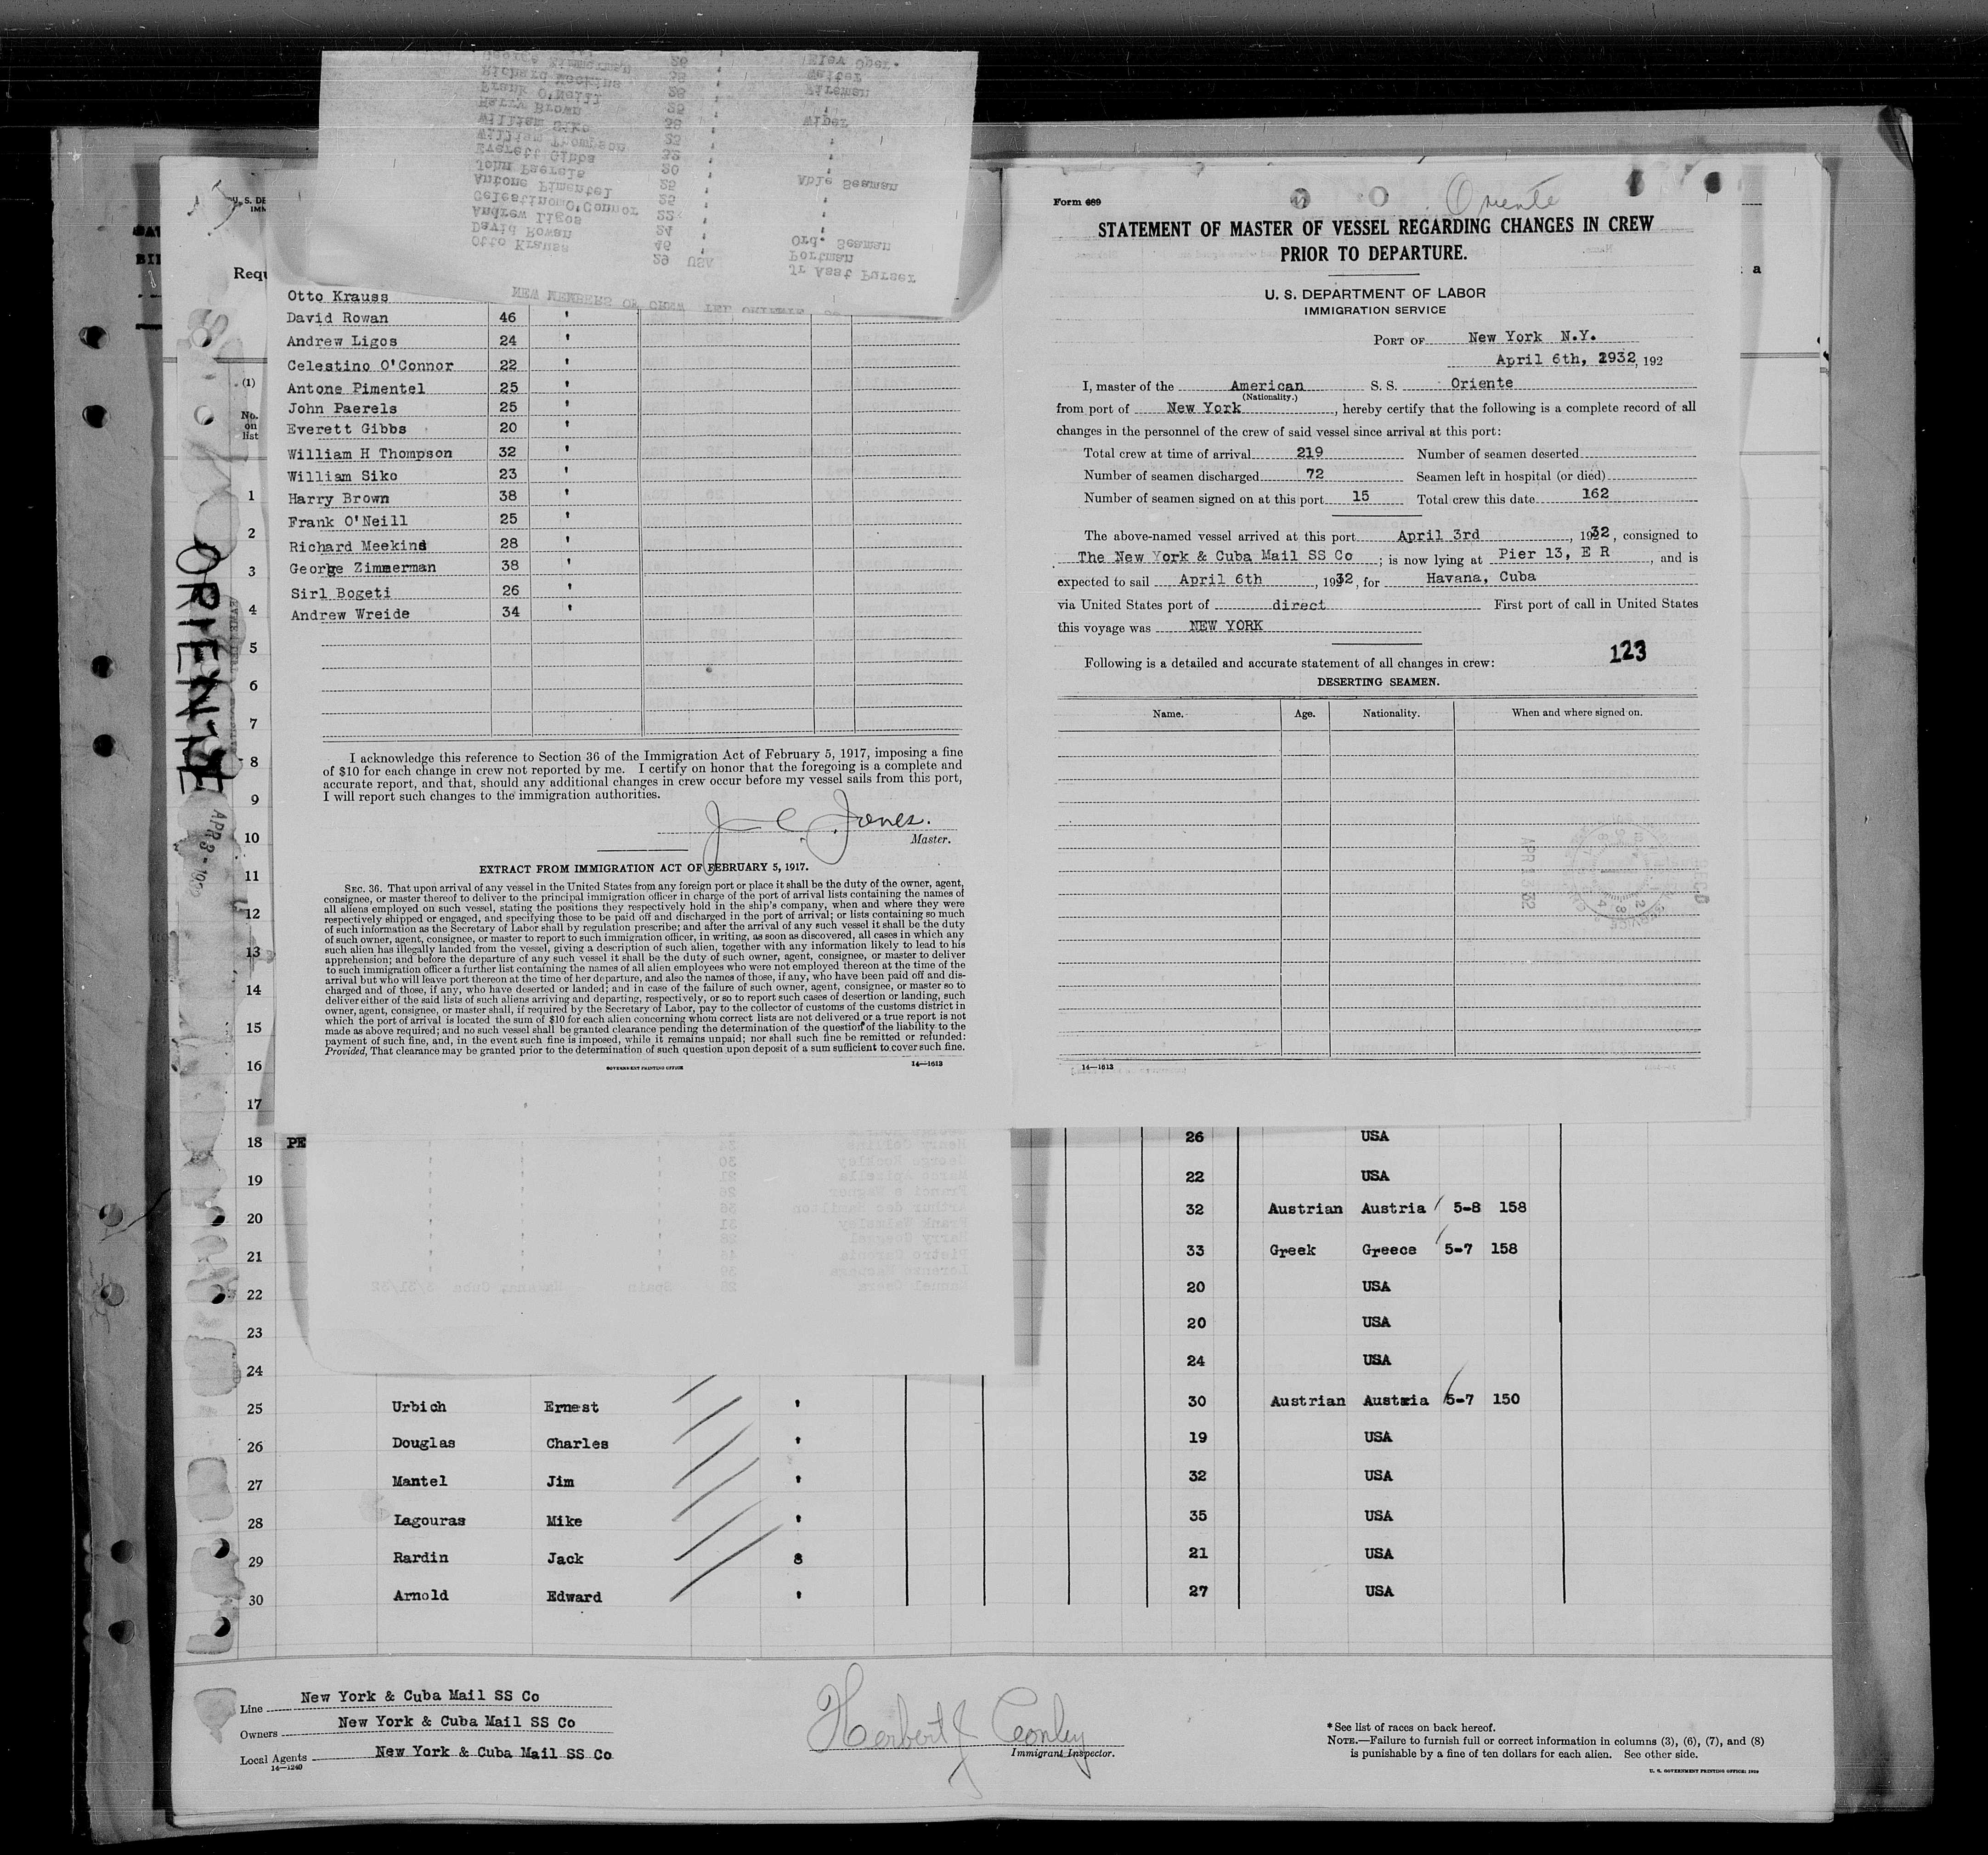 George Zimmerman 26 Elev Oper.
Richard Meekins 38 Waiter
Frank O'Neill 28 Fireman
Harry Brown 25 '
William Siko 38 ' Wiper
William Thompson 23 '
Everett Gibbs 32 '
John Paerels 20 '
Antone Pimentel 25 ' Able Seaman
Celestino O'Connor 25 '
Andrew Ligos 22 '
David Rowan 24 ' Ord. Seaman
Otto Krauss 46 ' Portman
29 USA Jr Asst Purser
NEW MEMBERS OF CREW
Otto Krauss
David Rowan 46 '
Andrew Ligos 24 '
Celestino O'Connor 22 '
Antone Pimentel 25 '
John Paerels 25 '
Everett Gibbs 20 '
William H Thompson 32 '
William Siko 23 '
Harry Brown 38 '
Frank O'Neill 25 '
Richard Meekins 28 '
George Zimmerman 38 '
Sirl Bogeti 26 '
Andrew Wreide 34 '
I acknowledge this reference to Section 36 of the Immigration Act of February 5, 1917, imposing a fine
of $10 for each change in crew not reported by me. I certify on honor that the foregoing is a complete and
accurate report, and that, should any additional changes in crew occur before my vessel sails from this port,
I will report such changes to the immigration authorities.
J C Jones.
Master.
EXTRACT FROM IMMIGRATION ACT OF FEBRUARY 5, 1917.
SEC. 36. That upon arrival of any vessel in the United States from any foreign port or place it shall be the duty of the owner, agent,
consignee, or master thereof to deliver to the principal immigration officer in charge of the port of arrival lists containing the names of
all aliens employed on such vessel, stating the positions they respectively hold in the ship's company, when and where they were
respectively shipped or engaged, and specifying those to be paid off and discharged in the port of arrival; or lists containing so much
of such information as the Secretary of Labor shall by regulation prescribe; and after the arrival of any such vessel it shall be the duty
of such owner, agent, consignee, or master to report to such immigration officer, in writing, as soon as discovered, all cases in which any
such alien has illegally landed from the vessel, giving a description of such alien, together with any information likely to lead to his
apprehension; and before the departure of any such vessel it shall be the duty of such owner, agent, consignee, or master to deliver
to such immigration officer a further list containing the names of all alien employees who were not employed thereon at the time of the
arrival but who will leave port thereon at the time of her departure, and also the names of those, if any, who have been paid off and dis-
charged and of those, if any, who have deserted or landed; and in case of the failure of such owner, agent, consignee, or master so to
deliver either of the said lists of such aliens arriving and departing, respectively, or so to report such cases of desertion or landing, such
owner, agent, consignee, or master shall, if required by the Secretary of Labor, pay to the collector of customs of the customs district in
which the port of arrival is located the sum of $10 for each alien concerning whom correct lists are not delivered or a true report is not
made as above required; and no such vessel shall be granted clearance pending the determination of the question of the liability to the
payment of such fine, and, in the event such fine is imposed, while it remains unpaid; nor shall such fine be remitted or refunded:
Provided, That clearance may be granted prior to the determination of such question upon deposit of a sum sufficient to cover such fine.
GOVERNMENT PRINTING OFFICE 14—1613
Form 689
Oriente
STATEMENT OF MASTER OF VESSEL REGARDING CHANGES IN CREW
PRIOR TO DEPARTURE.
U. S. DEPARTMENT OF LABOR
IMMIGRATION SERVICE
PORT OF New York N.Y.
April 6th, 1932, 192
I, master of the American S. S. Oriente
(Nationality.)
from port of New York, hereby certify that the following is a complete record of all
changes in the personnel of the crew of said vessel since arrival at this port:
Total crew at time of arrival 219 Number of seamen deserted
Number of seamen discharged 72 Seamen left in hospital (or died)
Number of seamen signed on at this port 15 Total crew this date 162
The above-named vessel arrived at this port April 3rd, 1932, consigned to
The New York & Cuba Mail SS Co; is now lying at Pier 13, E R, and is
expected to sail April 6th, 1932, for Havana, Cuba
via United States port of direct First port of call in United States
this voyage was NEW YORK
123
Following is a detailed and accurate statement of all changes in crew:
DESERTING SEAMEN.
Name. Age. Nationality. When and where signed on.
APR 13 32
14—1613
U. S. DE
IMM
Requ
(1)
No.
on
list
ORIENTE
APR 3 - 1932
1
2
3
4
5
6
7
8
9
10
11
12
13
14
15
16
17
18 PE 26 USA
19 22 USA
20 32 Austrian Austria 5-8 158
21 33 Greek Greece 5-7 158
22 20 USA
23 20 USA
24 24 USA
25 Urbich Ernest ' 30 Austrian Austria 5-7 150
26 Douglas Charles ' 19 USA
27 Mantel Jim ' 32 USA
28 Lagouras Mike ' 35 USA
29 Rardin Jack 8 21 USA
30 Arnold Edward ' 27 USA
Line New York & Cuba Mail SS Co
Owners New York & Cuba Mail SS Co
Local Agents New York & Cuba Mail SS Co
14—1240
Herbert J Conley
Immigrant Inspector.
* See list of races on back hereof.
NOTE.—Failure to furnish full or correct information in columns (3), (6), (7), and (8)
is punishable by a fine of ten dollars for each alien. See other side.
U. S. GOVERNMENT PRINTING OFFICE: